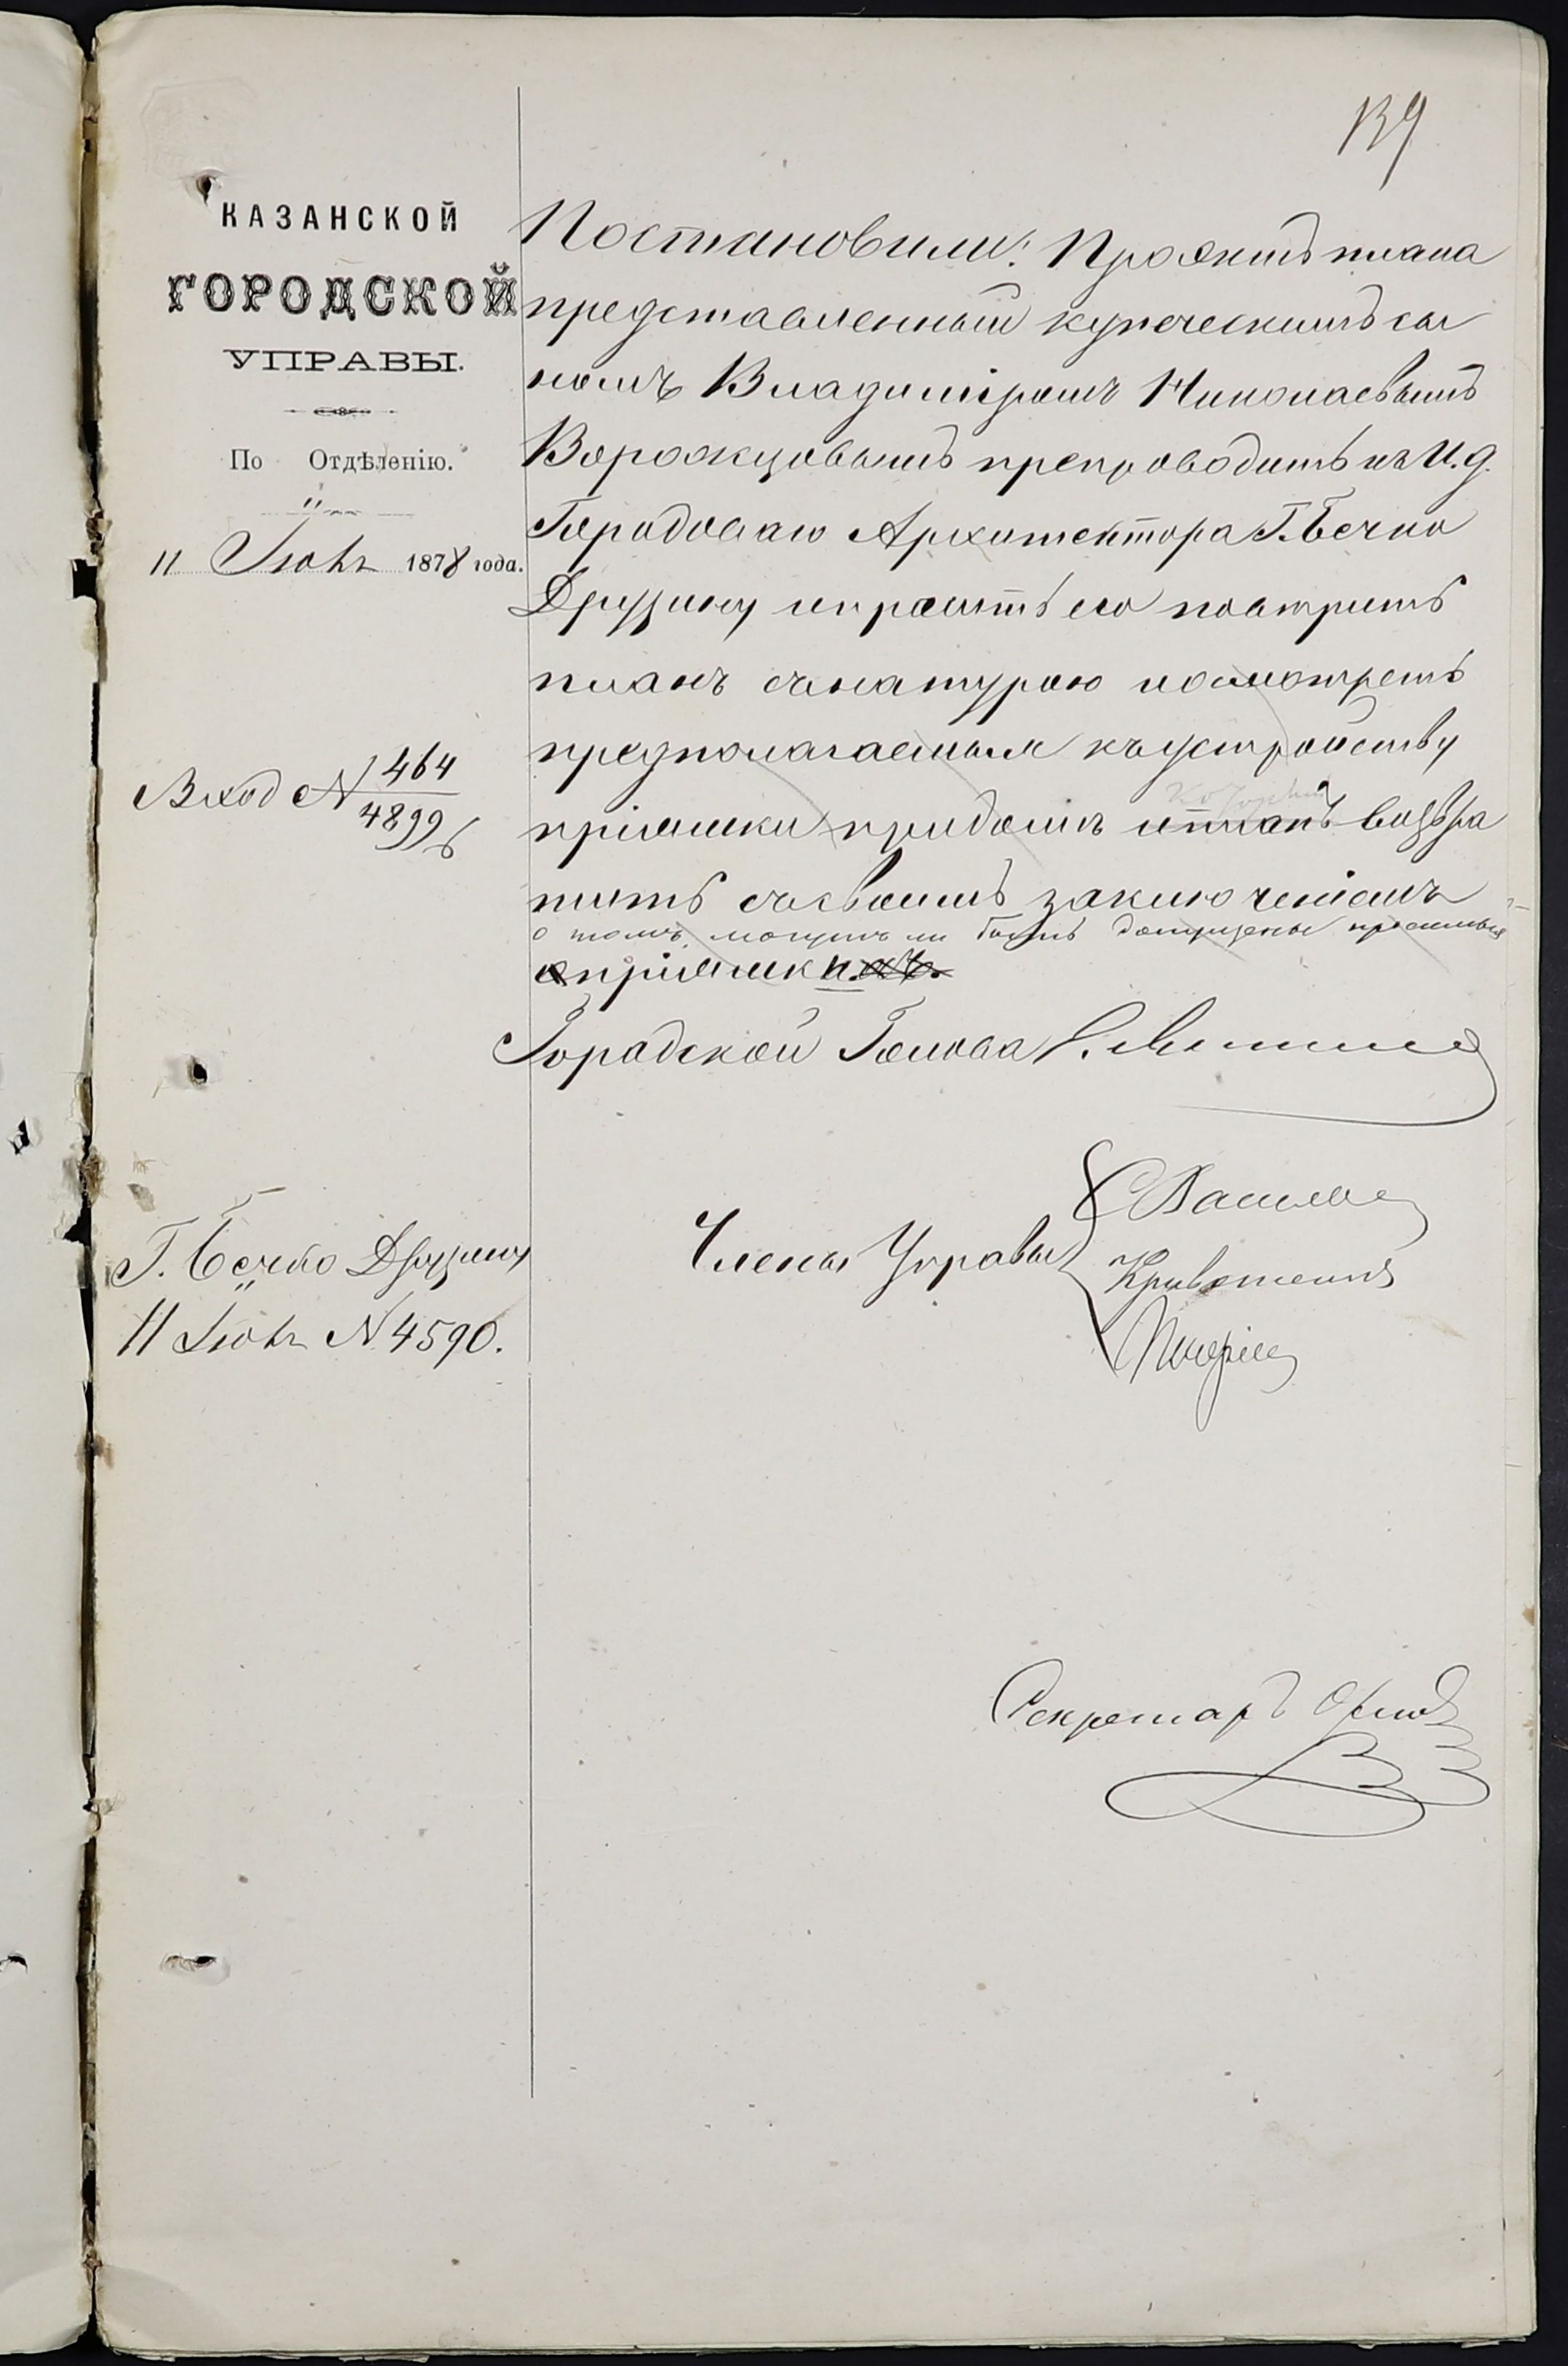 139
КАЗАНСКОЙ
ГОРОДСКОЙ
УПРАВЫ.
По Отдѣленію.
11 Іюня 1878 года.
Вход № 464
4899
Г. Бечко Друзину
11 Іюня № 4590.
Постановили: Проэктъ плана
представленный купеческимъ сы
номъ Владиміромъ Николаевымъ
Ворожцовымъ препроводить къ И. д.
Городоваго Архитектора Г. Бечко
Друзину и просить его повѣрить
планъ съ натурою посмотреть
предполагаемыя къ устройству
пріямки придомъ и планъ возвра
тить съ своимъ заключеніемъ
о томъ, могутъ ли быть допущены
пріямки
Городской Голова
Члены Управы
Секретарь